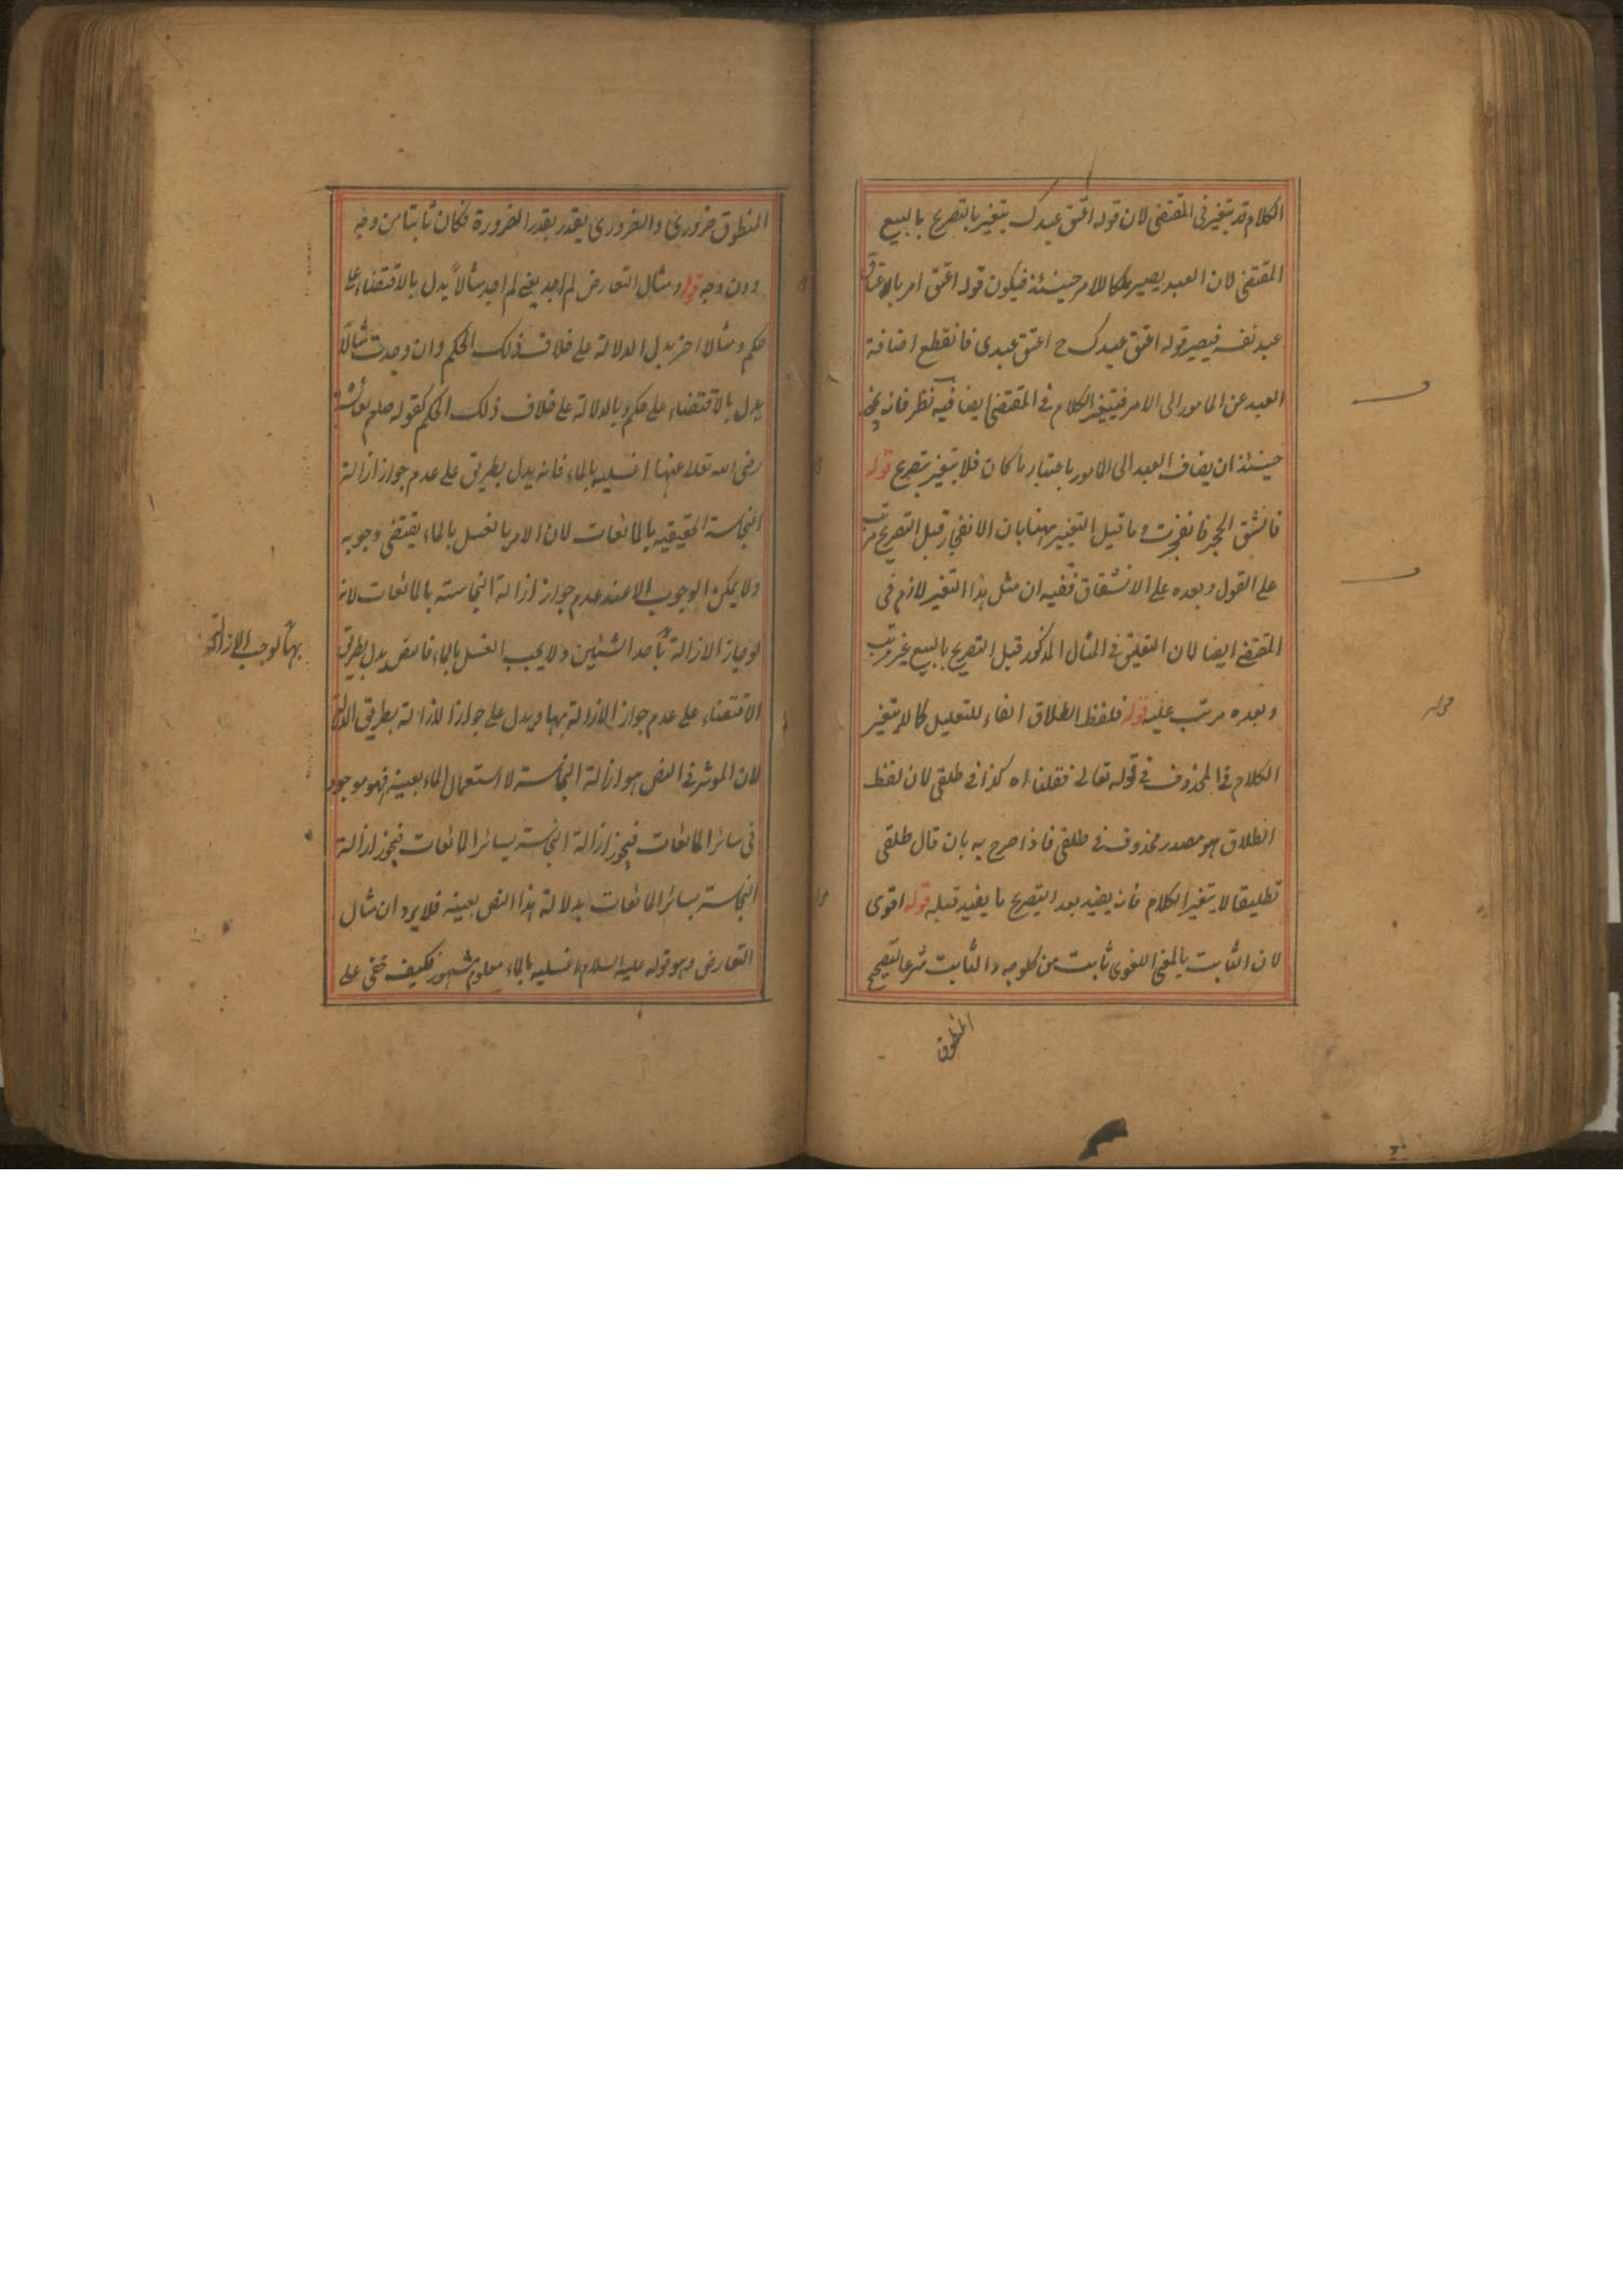 الكلام قد يتغير في المقتضى لان قوله اعتق عبدك يتغير بالتصريح بالبيع
المقتضى لان العبد يصير ملكا للامر حينئذ فيكون قوله اعتق امر بالاعتاق
عبد نفسه فيصير قوله اعتق عبدك ح اعتق عبدى فانقطع اضافة
العبد عن المامور الى الامر فيتغير الكلام في المقتضى ايضا فيه نظر فانه
حينئذ ان يضاف العبد الى المامور باعتبار ما كان فلا يتغير بتصريح قوله
فانشق الحجر فانفجرت وما قيل التغيير ههنا بان الانفجار قبل التصريح مرتب
على القول وبعده على الانشقاق ففيه ان مثل هذا التغير لازم فى
المقتضى ايضا لان التعليق في المثال المذكور قبل التصريح بالبيع غير مرتب
وبعده مرتب عليه قوله فلفظ الطلاق الفاء للتعليل كما لا يتغير
الكلام في المحذوف في قوله تعالى فقلنا اه كذا في طلقى لان لفظ
الطلاق هو مصدر محذوف في طلقى فاذا صرح به بان قال طلقى
تطليقا لا يتغير الكلام فانه يفيد بعد التصريح ما يفيد قبله قوله اقوى
لان الثابت بالمعنى اللغوى ثابت من كل وجه والثابت شرعا لتصحيح
المنطوق
المنطوق ضرورى والضرورى يقدر بقدر الضرورة فكان ثابتا من وجه
دون وجه قوله ومثال التعارض لم اجد يعنى لم اجد مثالاً يدل بالاقتضاء على
حكم ومثالا اخر يدل الدلالة على خلاف ذلك الحكم وان وجدت مثالا
يدل بالاقتضاء على حكم وبالدلالة على خلاف ذلك الحكم كقوله صلعم لعائشة
رضى الله تعالى عنها اغسليه بالماء فانه يدل بطريق على عدم جواز ازالة
النجاسة الحقيقيه بالمائعات لان الامر بالغسل بالماء يقتضى وجوبه
ولا يمكن الوجوب الا عند عدم جواز ازالة النجاسته بالمائعات لانه
لو جاز الازالة باحد الشيئين ولا يجب الغسل بالماء فالنص يدل بطريق
بها لوجب الازالة
الاقتضاء على عدم جواز الازالة بها ويدل على جواز الازالة بطريق الدلالة
لان الموثر في النص هو ازالة النجاسة لا استعمال الماء بعينه فهو موجود
فى سائر المائعات فيجوز ازالة النجاسة بسائر المائعات فيجوز ازالة
النجاسة بسائر المائعات بدلالة هذا النص بعينه فلا يرد ان مثال
التعارض وهو قوله عليه السلام اغسليه بالماء معلوم مشهور فكيف خفى على